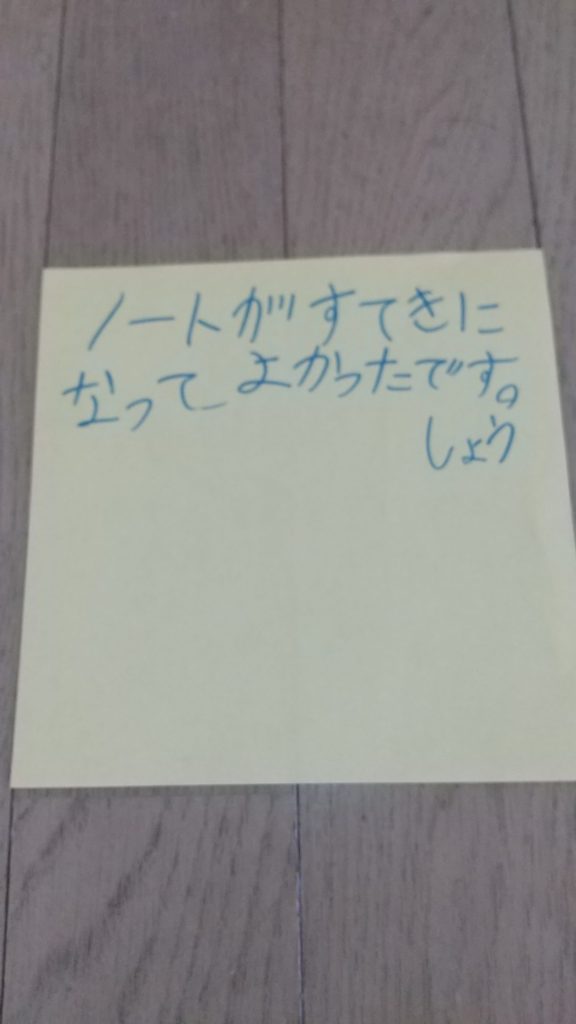 ノートがすてきに
なってよかったです。
しょう